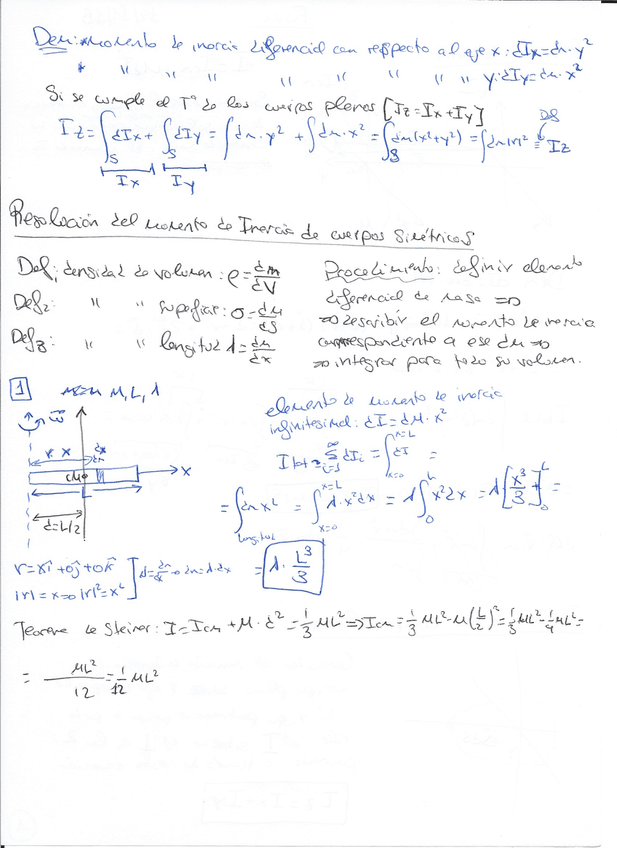 Dem: momento de inercia diferencial con respecto al eje x: dIx = dm·y²
" " " " " " " " y: dIy = dm·x²
Si se cumple el Tª de los cuerpos planos [Iz = Ix + Iy]
Iz = ∫_S dIx + ∫_S dIy = ∫dm·y² + ∫dm·x² = ∫_S dm(x²+y²) = ∫dm|r|² ≡ Iz
Ix Iy
Resolución del momento de Inercia de cuerpos Simétricos
Def₁: densidad de volumen: ρ = dm/dV
Def₂: " " superficie: σ = dm/dS
Def₃: " " longitud λ = dm/dx
Procedimiento: definir elemento
diferencial de masa ⇒
⇒ describir el momento de inercia
correspondiente a ese dm ⇒
⇒ integrar para todo su volumen.
1 M, L, λ
elemento de momento de inercia
infinitesimal: dI = dM·x²
x dx
dm
CM
x
d = L/2
∑ dIᵢ = ∫_{x=0}^{x=L} dI =
= ∫_{longitud} dm x² = ∫_{x=0}^{x=L} λ·x² dx = λ∫_0^L x² dx = λ[x³/3]_0^L =
= λ·L³/3
r = xî + 0ĵ + 0k̂
|r| = x ⇒ |r|² = x²
λ = dm/dx → dm = λ·dx
Teorema de Steiner: I = Icm + M·d² = 1/3 ML² ⇒ Icm = 1/3 ML² - M(L/2)² = 1/3 ML² - 1/4 ML² =
= ML²/12 = 1/12 ML²